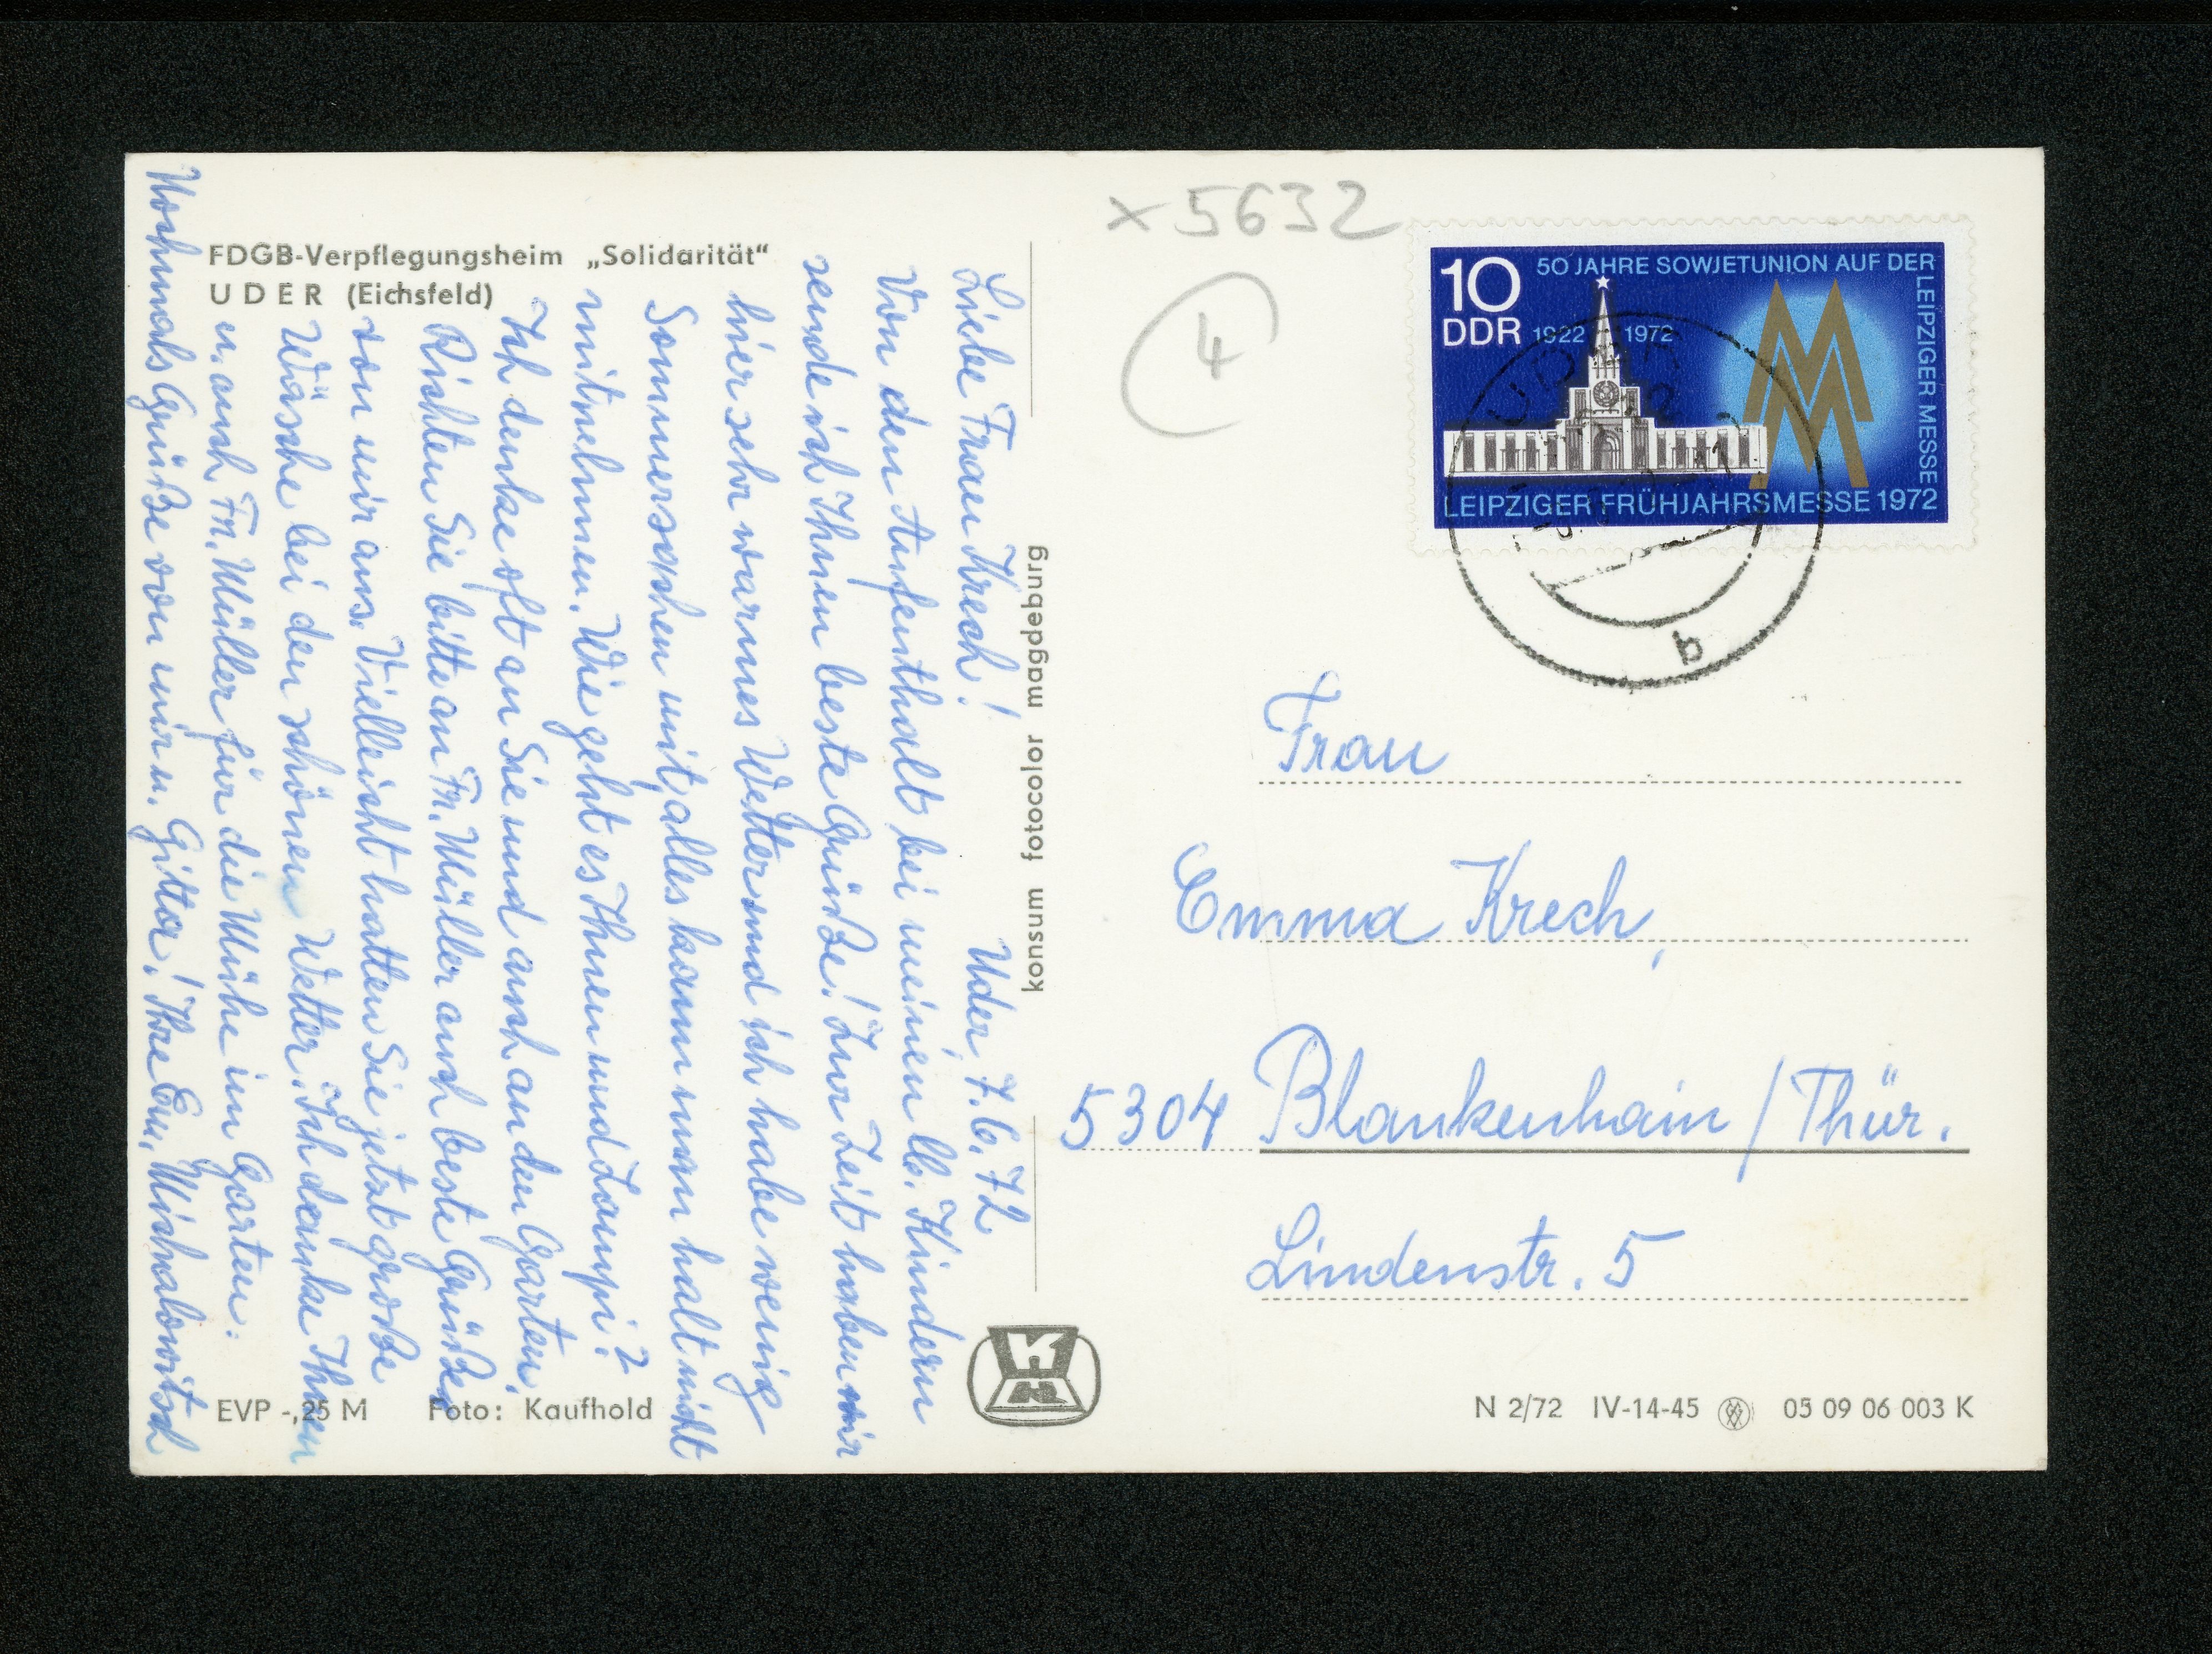 FDGB-Verpflegungsheim „Solidarität“
UDER (Eichsfeld)
Uder, 7.6.72
Liebe Frau Krech!
Von dem Aufenthalt bei meinen lb. Kindern
sende ich Ihnen beste Grüße! Zur Zeit haben wir
hier sehr warmes Wetter und ich habe wenig
Sommersachen mit, alles kann man halt nicht
mitnehmen. Wie geht es Ihnen und Lumpi?
Ich denke oft an Sie und auch an den Garten.
Richten Sie bitte an Fr. Müller auch beste Grüße
von mir aus. Vielleicht hatten Sie jetzt große
Wäsche bei den schönen Wetter. Ich danke Ihnen
u. auch Fr. Müller für die Mühe im Garten.
Nochmals Grüße von mir u. Gitta! Ihre Em.
konsum fotocolor magdeburg
EVP -,25 M Foto: Kaufhold
x 5632
4
10
DDR
50 JAHRE SOWJETUNION AUF DER
LEIPZIGER MESSE
1922 1972
LEIPZIGER FRÜHJAHRSMESSE 1972
UDER
b
Frau
Emma Krech,
5304 Blankenhain / Thür.
Lindenstr. 5
N 2/72 IV-14-45 05 09 06 003 K